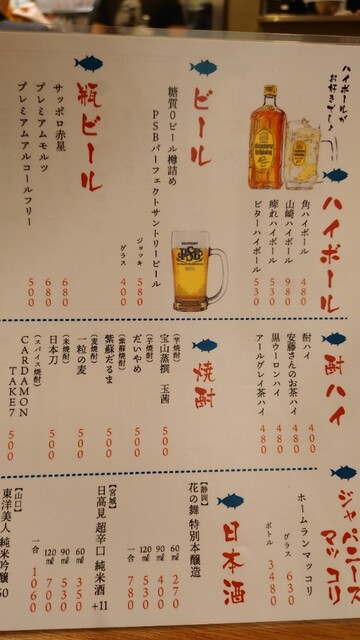 ハイボールが
お好きでしょ
ハイボール
角ハイボール 480
山崎ハイボール 980
痺れハイボール 530
ビターハイボール 530
ビール
糖質0ビール樽詰め
PSBパーフェクトサントリービール
ジョッキ 580
グラス 400
瓶ビール
サッポロ赤星 680
プレミアムモルツ 680
プレミアムアルコールフリー 500
酎ハイ
酎ハイ 400
安藤さんのお茶ハイ 480
黒ウーロンハイ 480
アールグレイ茶ハイ 480
焼酎
(芋焼酎)
宝山蒸撰 玉茜 500
(芋焼酎)
だいやめ 500
(紫蘇焼酎)
紫蘇だるま 500
(麦焼酎)
一粒の麦 500
(米焼酎)
日本刀 500
(スパイス焼酎)
CARDAMON
TAKE7 500
ジャパニーズ
マッコリ
ホームランマッコリ
グラス 630
ボトル 3480
日本酒
【静岡】
花の舞 特別本醸造
60㎖ 270
90㎖ 400
120㎖ 530
一合 780
【宮城】
日高見 超辛口 純米酒 +11
60㎖ 350
90㎖ 530
120㎖ 700
一合 1060
【山口】
東洋美人 純米吟醸 50